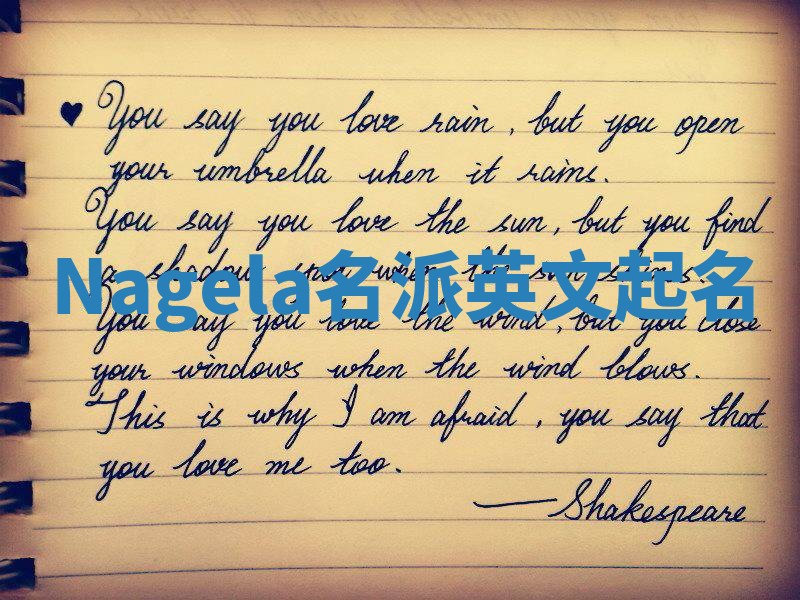 You say you love rain, but you open
your umbrella when it rains.
You say you love the sun, but you find
a shadow spot when the sun shines.
Nagela名派英文起名
You say you love the wind, but you close
your windows when the wind blows.
This is why I am afraid, you say that
you love me too.
—Shakespeare